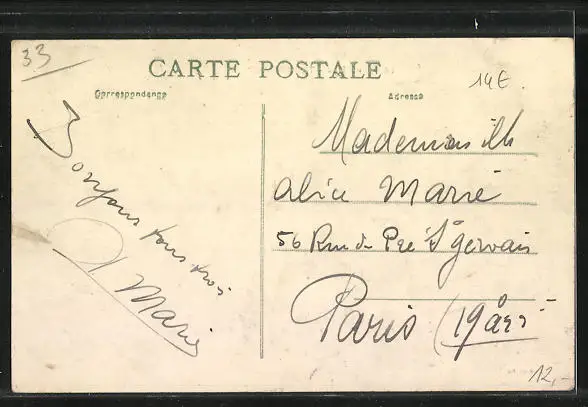 33
CARTE POSTALE
14E
Correspondance
Adresse
Bonjour tous trois
A Marie
Mademoiselle
Alice Marie
56 Rue du Pré St Gervais
Paris (19 arr
12,-